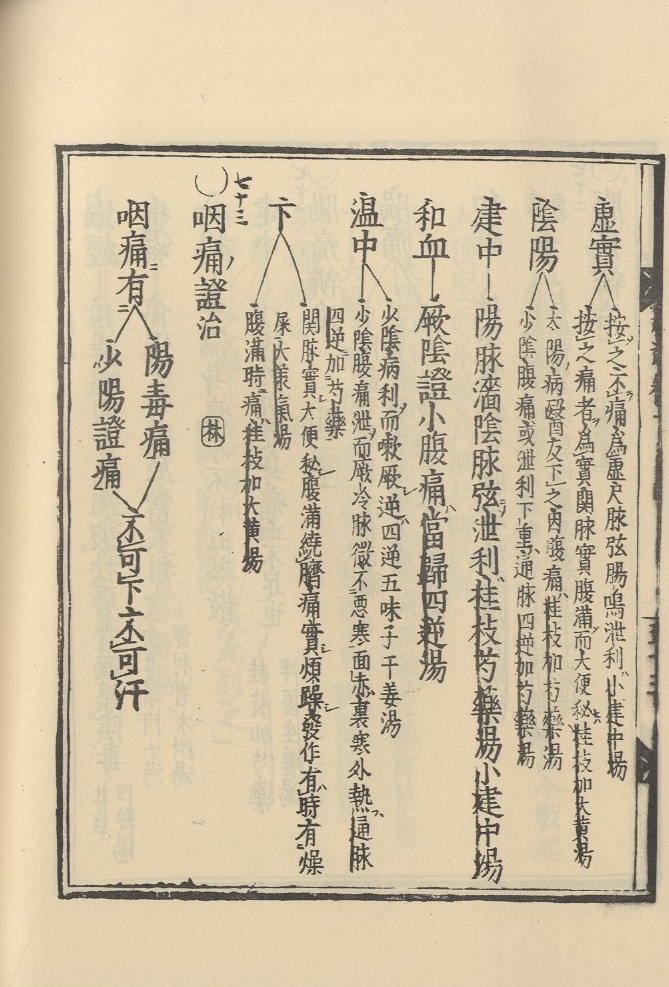 虛實
按之不痛爲虛尺脉弦腸鳴泄利小建中湯
按之痛者爲實關脉實腹滿而大便秘桂枝加大黄湯
陰陽
太陽病醫反下之因腹痛桂枝加芍藥湯
少陰腹痛或泄利下重通脉四逆加芍藥湯
建中
陽脉濇陰脉弦泄利桂枝芍藥湯小建中湯
和血
厥陰證小腹痛當歸四逆湯
温中
少陰病利而嗽厥逆四逆五味子干姜湯
少陰腹痛泄而厥冷脉微不惡寒面赤裏寒外熱通脉
四逆加芍藥
下
関脉實大便秘腹滿繞臍痛實煩躁發作有時有燥
屎大承氣湯
腹滿時痛桂枝加大黄湯
七十三
咽痛證治 林
咽痛有二
陽毒痛
少陽證痛
不可下不可汗